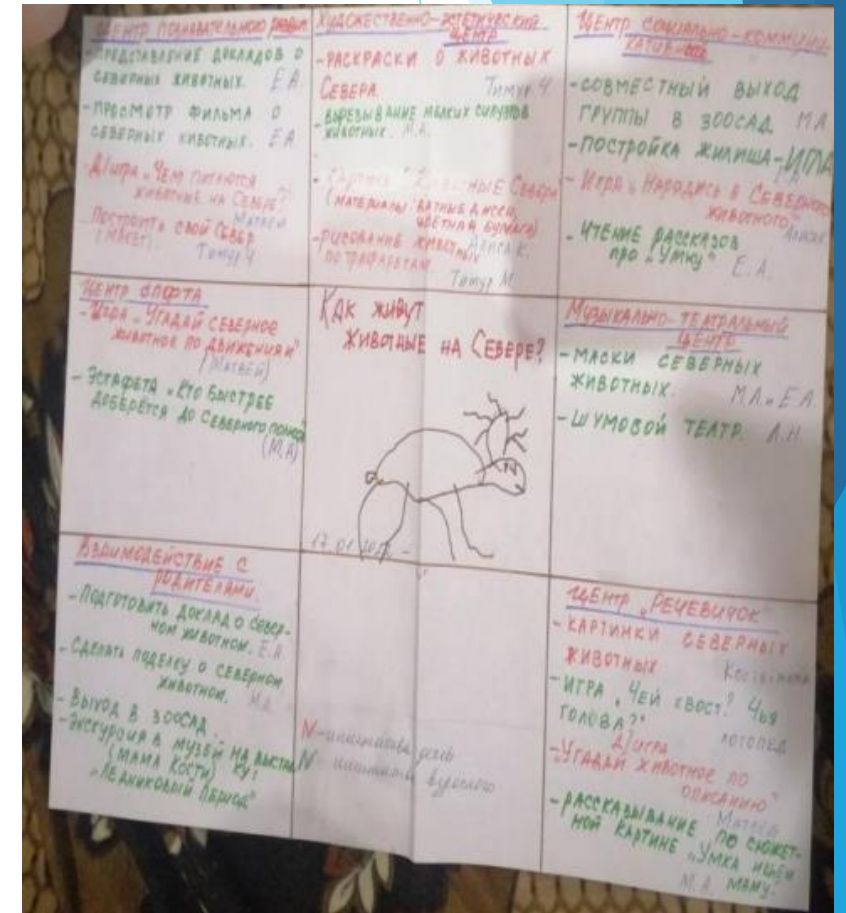 ЦЕНТР ПОЗНАВАТЕЛЬНОГО
- ПРЕДСТАВЛЕНИЕ ДОКЛАДОВ О
СЕВЕРНЫХ ЖИВОТНЫХ. Е.А.
- ПРОСМОТР ФИЛЬМА О
СЕВЕРНЫХ ЖИВОТНЫХ. Е.А
- Д/ИГРА „ЧЕМ ПИТАЮТСЯ
ЖИВОТНЫЕ НА СЕВЕРЕ?
МАТВЕЙ
ПОСТРОИТЬ СВОЙ СЕВЕР
(МАКЕТ). Тимур Ч
ХУДОЖЕСТВЕННО-ЭСТЕТИЧЕСКИЙ
ЦЕНТР
- РАСКРАСКИ О ЖИВОТНЫХ
СЕВЕРА. Тимур Ч.
- ВЫРЕЗЫВАНИЕ МЕЛКИХ СИЛУЭТОВ
ЖИВОТНЫХ. М.А.
- КАРТИНЫ "ЖИВОТНЫЕ СЕВЕРА
(МАТЕРИАЛЫ: ВАТНЫЕ ДИСКИ,
БУМАГА)
Алиса К.
- РИСОВАНИЕ ЖИВОТНЫХ
ПО ТРАФАРЕТАМ.
Тимур М.
ЦЕНТР СОЦИАЛЬНО-КОММУНИ-
КАТИВ
- СОВМЕСТНЫЙ ВЫХОД
ГРУППЫ В ЗООСАД М.А.
- ПОСТРОЙКА ЖИЛИЩА-ИГЛА
- ИГРА „НАРЯДИСЬ В СЕВЕРНОГО
ЖИВОТНОГО"
- ЧТЕНИЕ РАССКАЗОВ
ПРО „УМКУ" Е.А.
ЦЕНТР СПОРТА
- ИГРА „УГАДАЙ СЕВЕРНОЕ
ЖИВОТНОЕ ПО ДВИЖЕНИЯМ"
(МАТВЕЙ)
- ЭСТАФЕТА „КТО БЫСТРЕЕ
ДОБЕРЁТСЯ ДО СЕВЕРНОГО ПОЛЮСА
(М.А)
КАК ЖИВУТ
ЖИВОТНЫЕ НА СЕВЕРЕ?
17.01.
МУЗЫКАЛЬНО-ТЕАТРАЛЬНЫЙ
ЦЕНТР
- МАСКИ СЕВЕРНЫХ
ЖИВОТНЫХ. М.А. Е.А
- ШУМОВОЙ ТЕАТР. А.Н.
ВЗАИМОДЕЙСТВИЕ С
РОДИТЕЛЯМИ.
- ПОДГОТОВИТЬ ДОКЛАД О СЕВЕР-
НОМ ЖИВОТНОМ. Е.А.
- СДЕЛАТЬ ПОДЕЛКУ О СЕВЕРНОМ
ЖИВОТНОМ. М.А.
- ВЫХОД В ЗООСАД.
- ЭКСКУРСИЯ В МУЗЕЙ НА ВЫСТАВ
КУ:
(МАМА КОСТИ)
„ЛЕДНИКОВЫЙ ПЕРИОД"
N - инициатива детей
N - взрослого
ЦЕНТР „РЕЧЕВИЧОК"
- КАРТИНКИ СЕВЕРНЫХ
ЖИВОТНЫХ
- ИГРА „ЧЕЙ ХВОСТ? ЧЬЯ
ГОЛОВА?"
ЛОГОПЕД
Д/ИГРА
- „УГАДАЙ ЖИВОТНОЕ ПО
ОПИСАНИЮ"
МАТВЕЙ
- РАССКАЗЫВАНИЕ ПО СЮЖЕТ-
НОЙ КАРТИНЕ „УМКА ИЩЕТ
М.А. МАМУ"